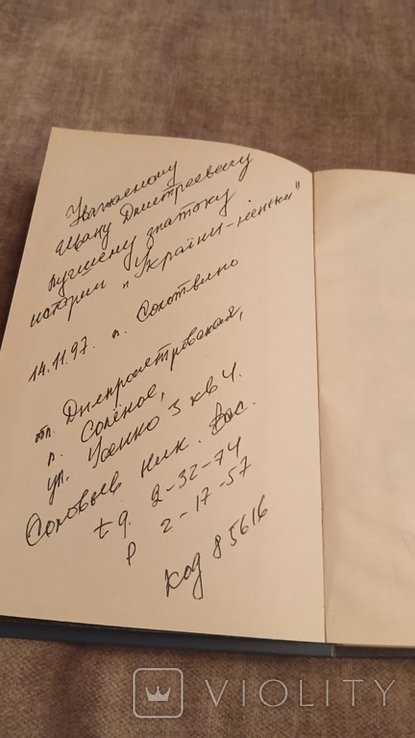 Уважаемому
Ивану Дмитреевичу
лучшему знатоку
истории „України-неньки"
14.11.97. п. Солотвино
обл. Днепропетровская,
п. Солёное,
ул. 3 кв 4.
Соловьев Ник. Вас.
t д. 2-32-74
р 2-17-57
код 85616
VIOLITY